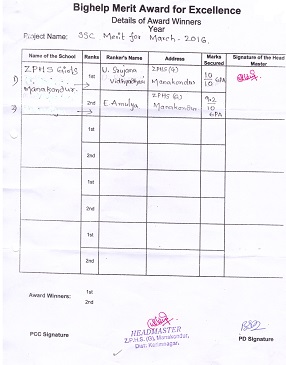 Bighelp Merit Award for Excellence
Details of Award Winners
Year
Project Name: SSC Merit for March-2016.
Name of the School Ranks Ranker's Name Address Marks Secured Signature of the Head Master
1) ZPHS Girls Manakondur. 1st U. Srujana ZPHS (G) Manakondur 10/10 GPA
2nd E. Amulya ZPHS (G) Manakondur. 9.2/10 GPA
1st
2nd
1st
2nd
1st
2nd
Award Winners: 1st
2nd
PCC Signature
HEADMASTER
Z.P.H.S. (G), Manakondur,
Dist: Karimnagar.
PD Signature